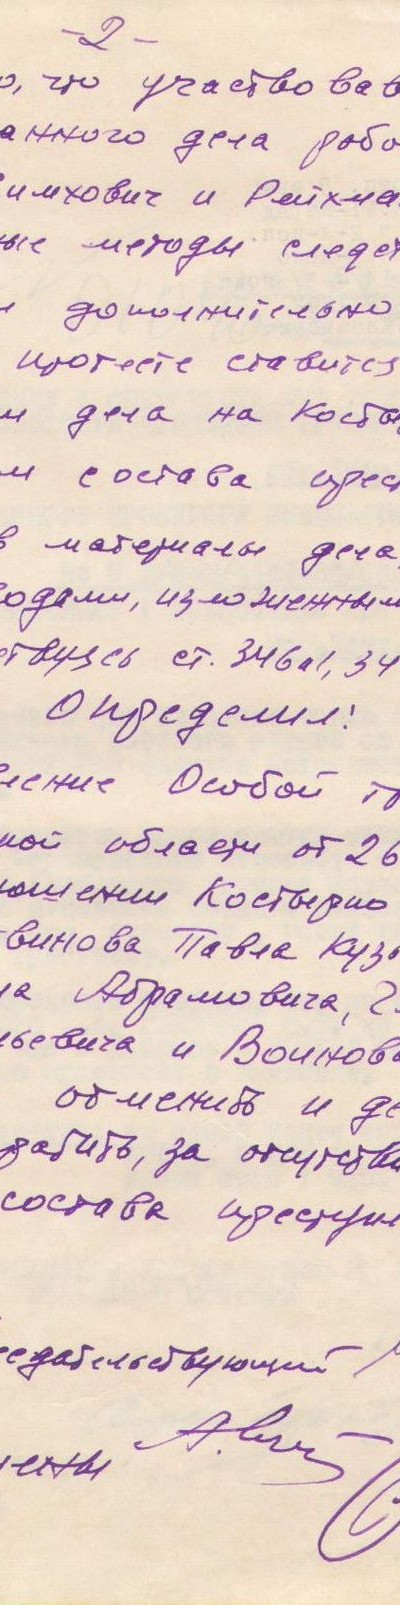 -2-
о, что участвовав
анного дела рабо
имхович и Рейхма
ные методы следст
и дополнительно
протесте ставится
ии дела на Косты
ем состава прест
в материалы дела,
водами, изложенными
ствуясь ст. 346а1, 34
Определил:
вление Особой тр
ской области от 26
ношении Костырко
твинова Павла Кузь
ла Абрамовича, Г
льевича и Воинова
отменить и де
ратить, за отсутстви
состава преступл
редседательствующий
члены